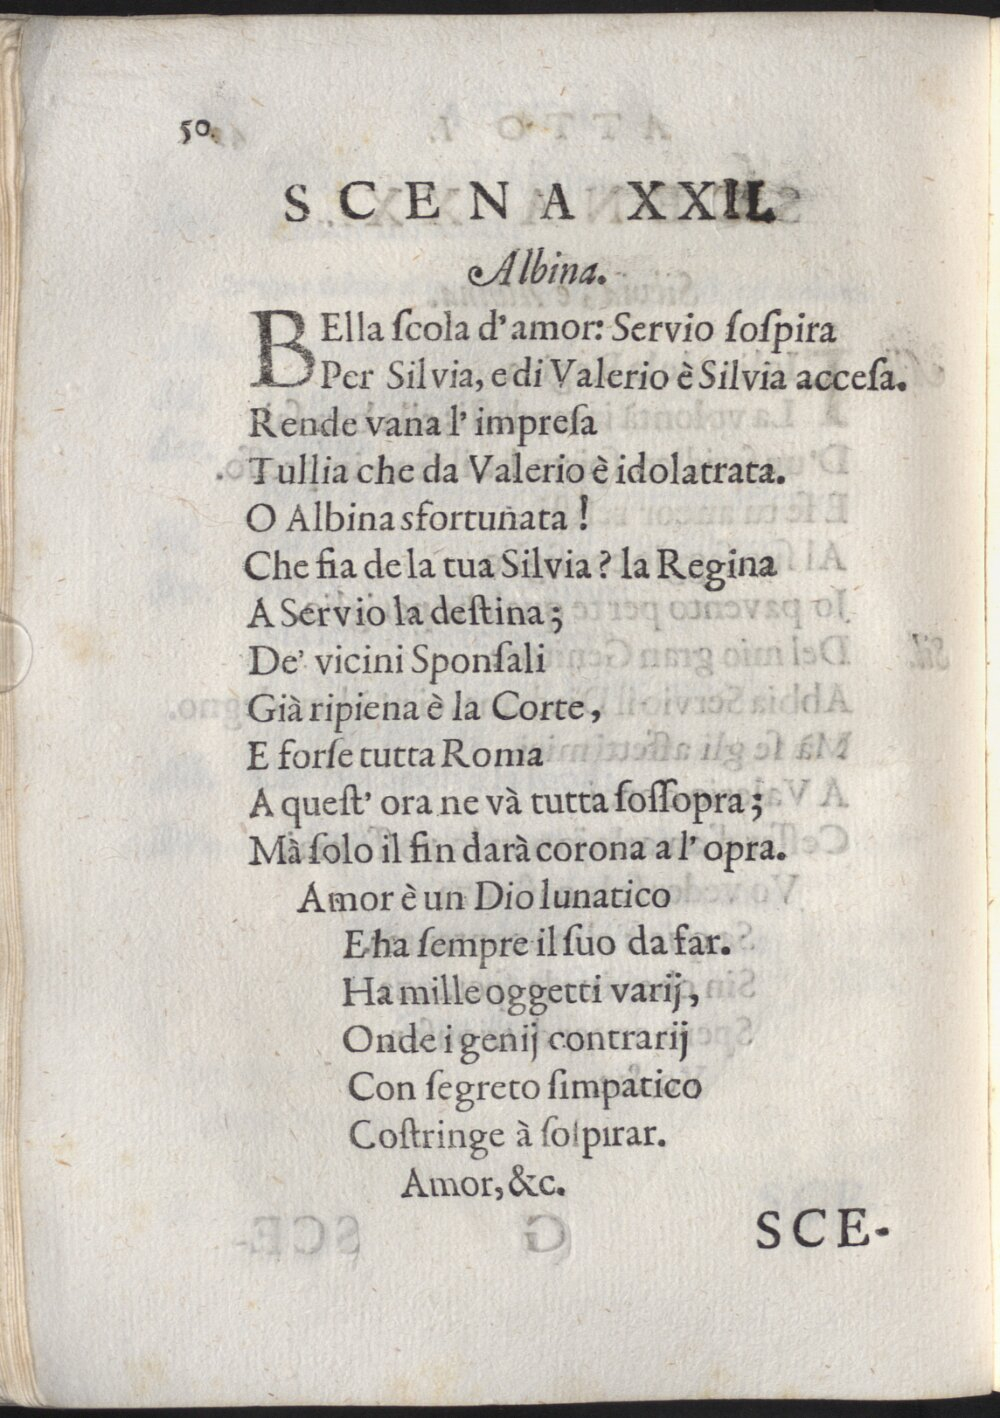 50.
SCENA XXII.
Albina.
BElla ſcola d'amor: Servio ſoſpira
Per Silvia, e di Valerio è Silvia acceſa.
Rende vana l' impreſa
Tullia che da Valerio è idolatrata.
O Albina sfortunata !
Che fia de la tua Silvia ? la Regina
A Servio la deſtina ;
De' vicini Sponſali
Già ripiena è la Corte ,
E forſe tutta Roma
A queſt' ora ne và tutta foſſopra ;
Mà ſolo il fin darà corona a l' opra.
Amor è un Dio lunatico
E ha ſempre il ſuo da far.
Ha mille oggetti varij ,
Onde i genij contrarij
Con ſegreto ſimpatico
Coſtringe à ſoſpirar.
Amor, &c.
SCE-